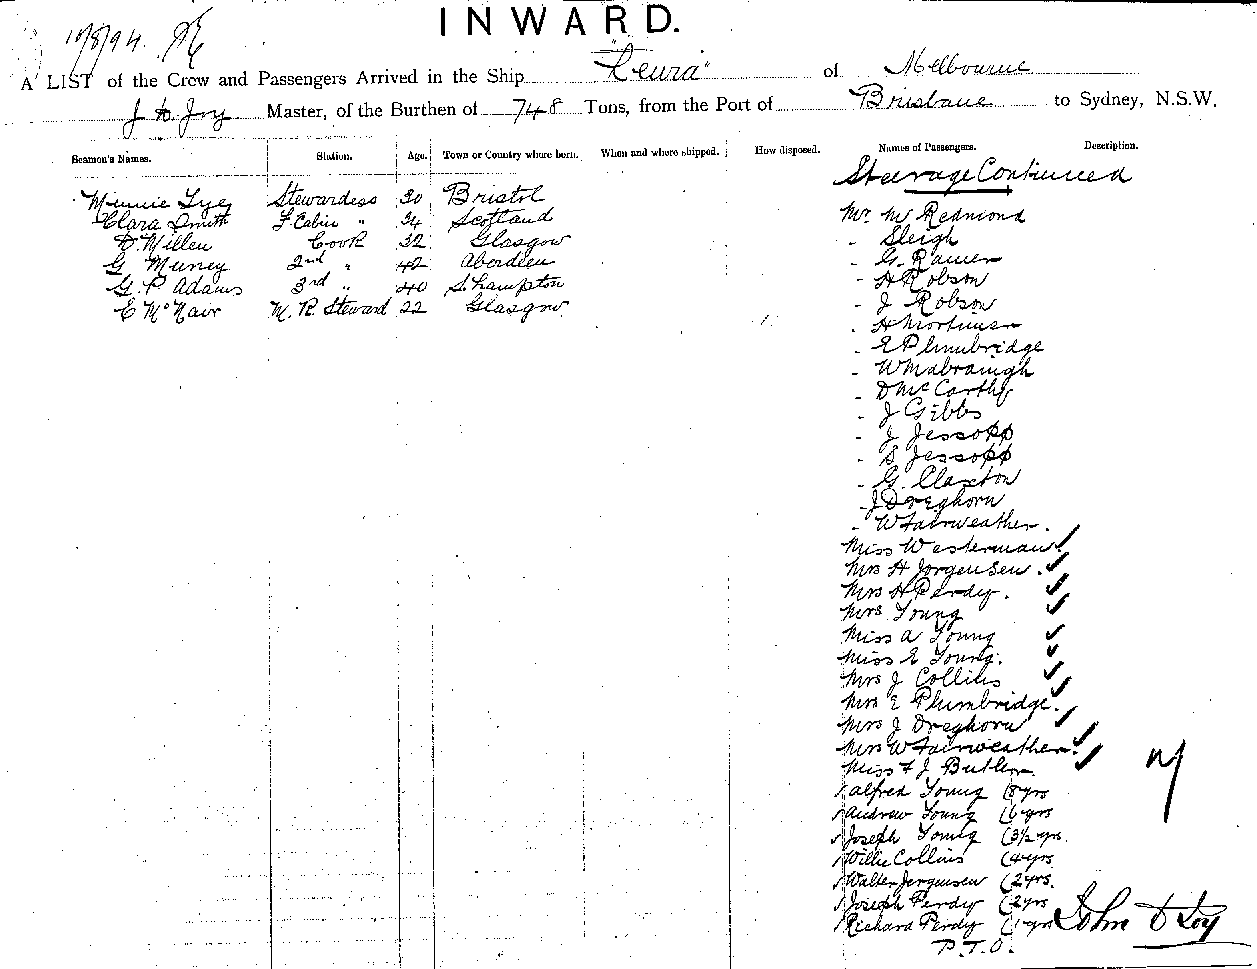 INWARD.
10/8/94.
A LIST of the Crew and Passengers Arrived in the Ship "Leura" of Melbourne
Master, of the Burthen of 748 Tons, from the Port of Brisbane to Sydney, N.S.W.
Seamen's Names. Station. Age. Town or Country where born. When and where shipped. How disposed. Names of Passengers. Description.
Steerage Continued
Minnie Stewardess 30 Bristol
Clara Smith F. Cabin " 34 Scotland
D. Millen Cook 32 Glasgow
G 2nd " 42 Aberdeen
G. P. Adams 3rd " 40 S.hampton
E McNair M. R. Steward 22 Glasgow
Mr M Redmond
- Sleigh
- G. Rainer
- H Robson
- J Robson
- H Mortimer
- E Plumbridge
- W
- D McCarthy
- J Gibbs
- J Jessopp
- S Jessopp
- G. Claxton
J Dreghorn
- W Fairweather.
Miss Westerman
Mrs H Jorgensen.
Mrs H Perdy.
Mrs Young
Miss A Young
Miss E Young.
Mrs J Collins
Mrs E Plumbridge.
Mrs J Dreghorn
Mrs W Fairweather.
Miss F J Butler
Alfred Young (8 yrs
Andrew Young (6 yrs
Joseph Young (3½ yrs.
Willie Collins (4 yrs
Walter Jorgensen (2 yrs.
Joseph Perdy (2 yrs
Richard Perdy (1 yrs
P.T.O.
John